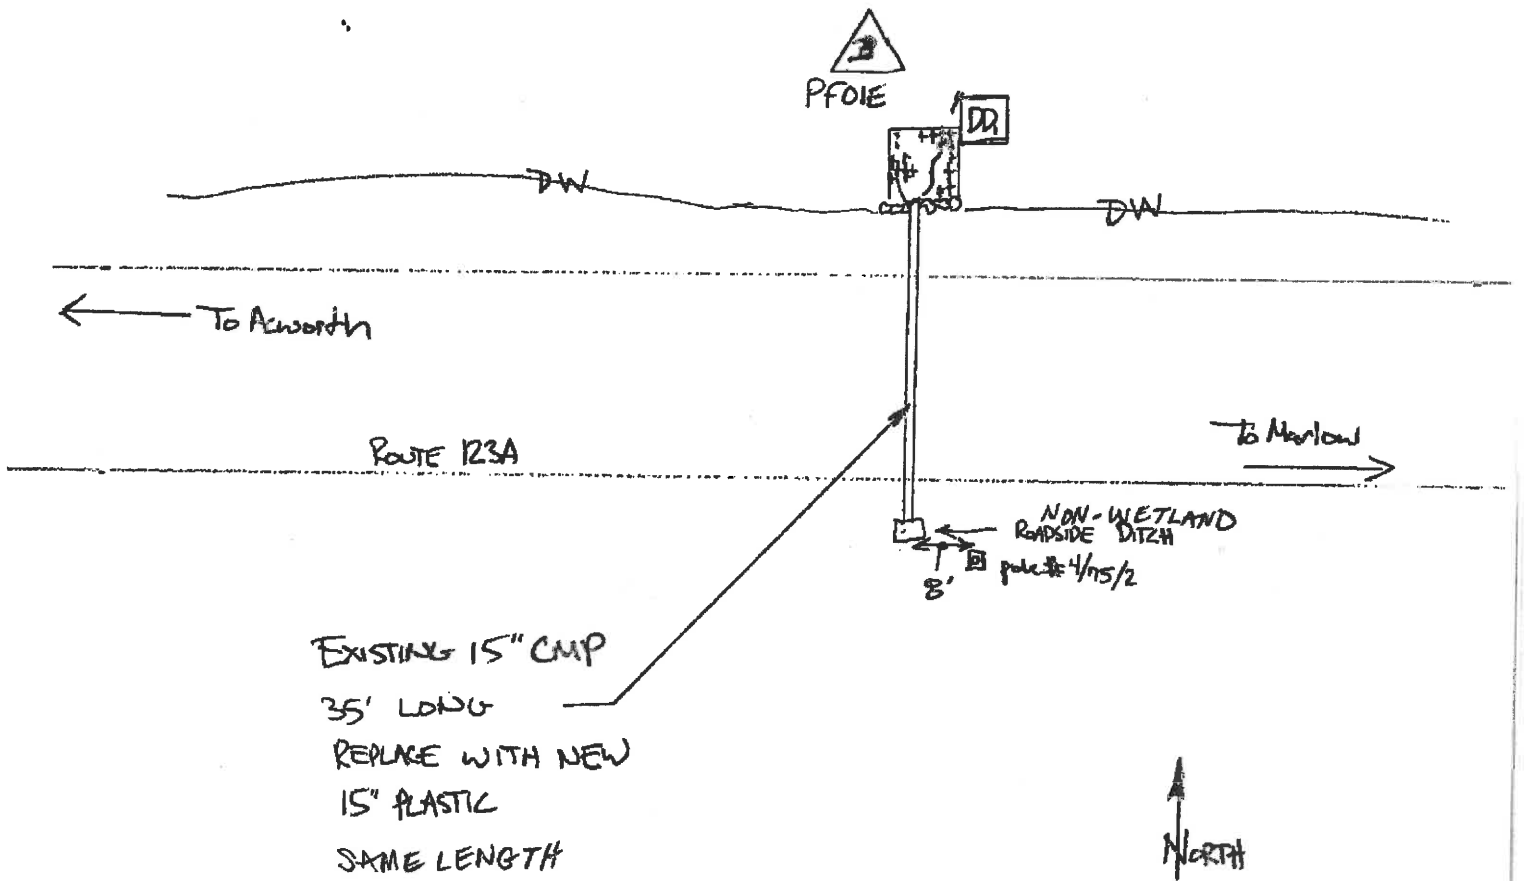 PFO1E
DD1
DW
DW
To Acworth
ROUTE 123A
To Marlow
NON-WETLAND
ROADSIDE DITCH
8'
pole # 4/75/2
EXISTING 15" CMP
35' LONG
REPLACE WITH NEW
15" PLASTIC
SAME LENGTH
NORTH